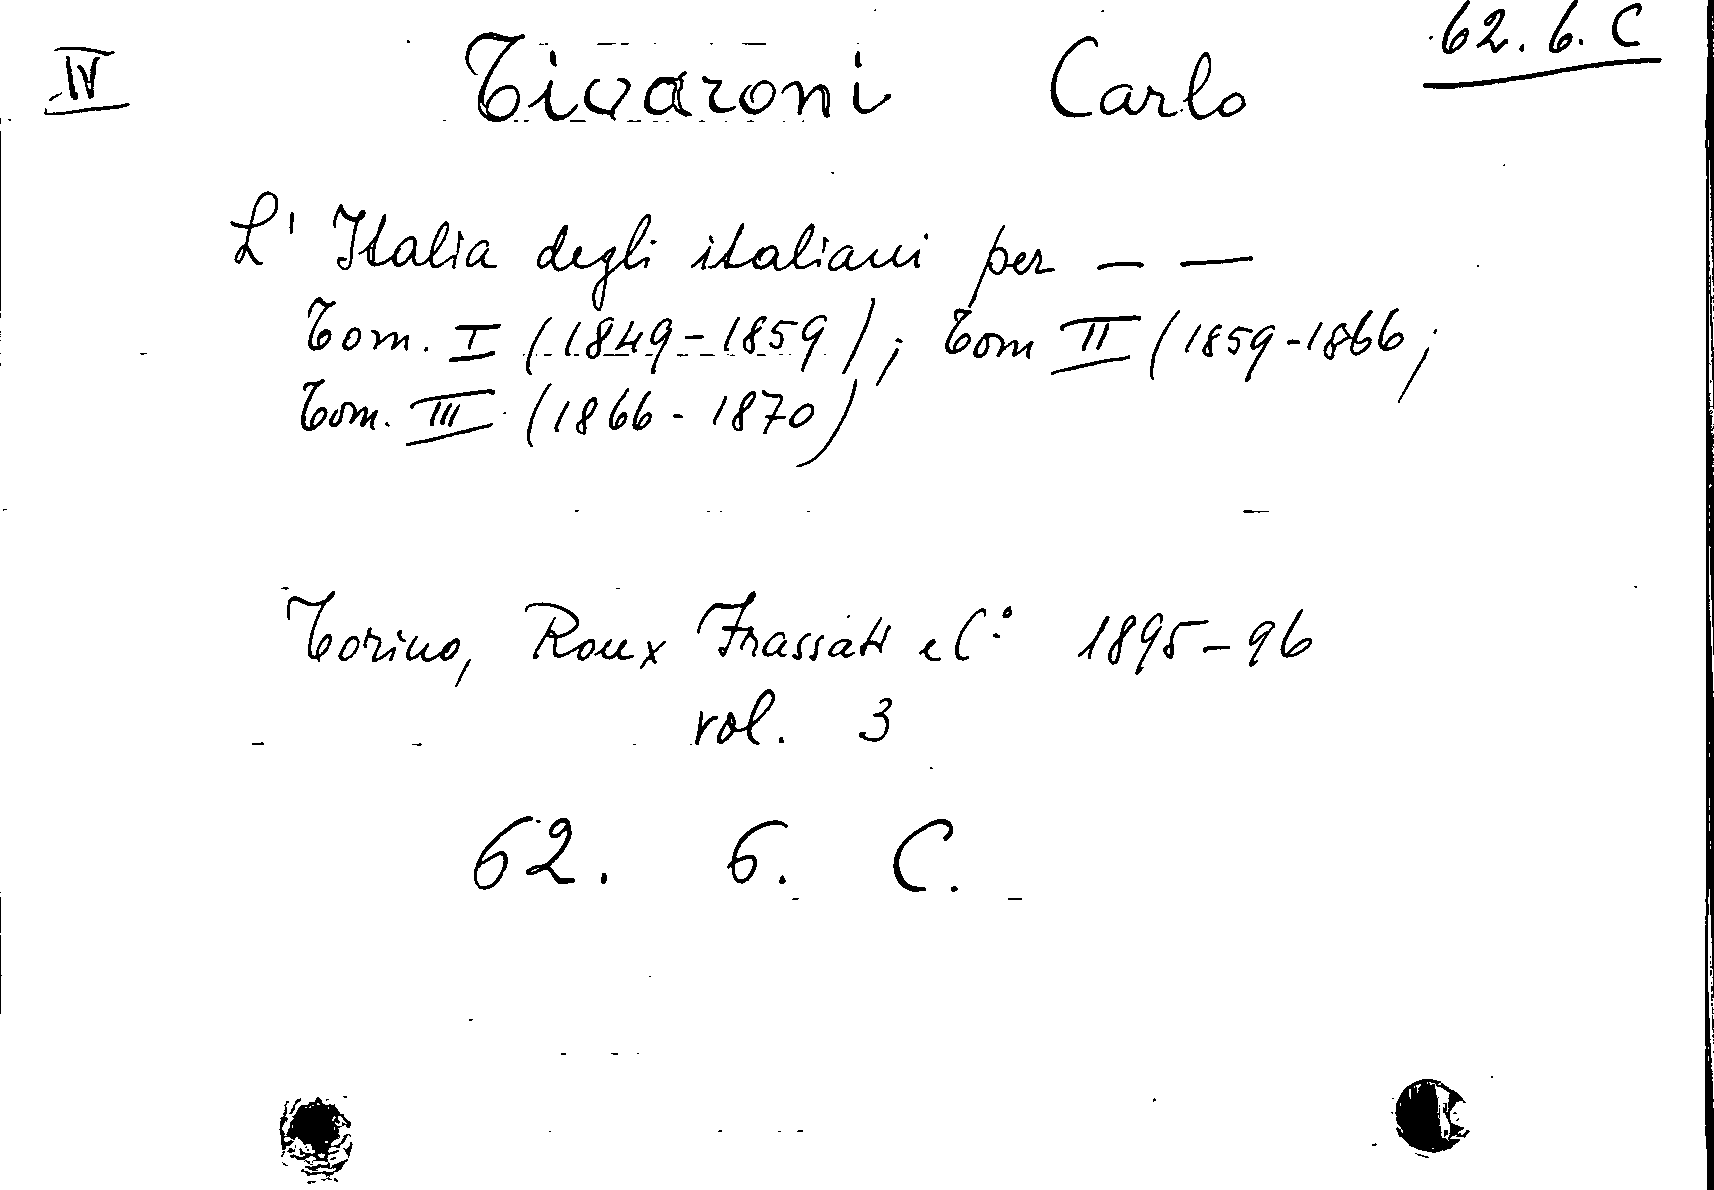 IV Tivaroni Carlo 62. 6. C
L' Italia degli italiani per — —
Tom. I (1849-1859); Tom II (1859-1866;
Tom. III (1866-1870)
Torino, Roux Frassati e C.° 1895-96
vol. 3
62. 6. C.